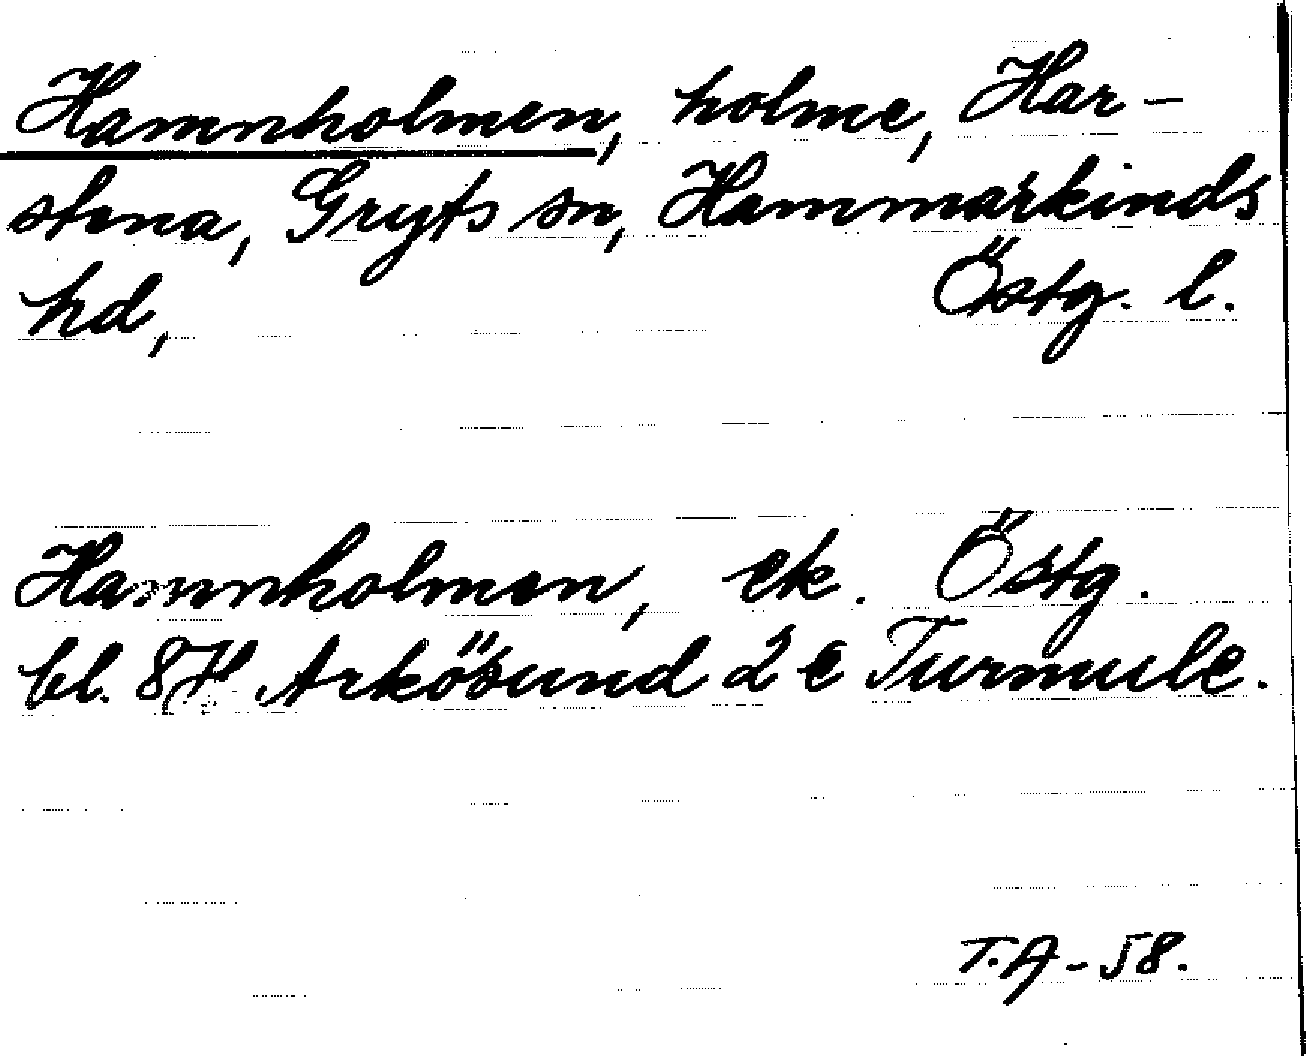 Hamnholmen, holme, Har-
stena, Gryts sn, Hammarkinds
hd, Östg. l.
Hamnholmen, ek. Östg.
bl. 8H Arkösund 2 e Turmule.
T.A-58.